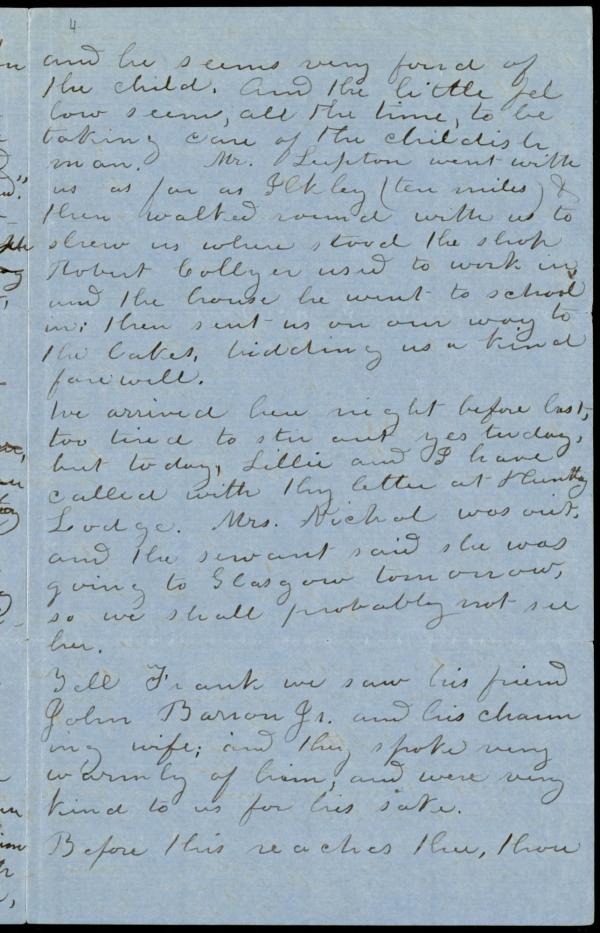 4
and he seems very fond of
the child. And the little fel
low seem, all the time, to be
taking care of the childish
man. Mr. Lupton went with
us as far as Ilkley (ten miles) &
then walked round with us to
shew us where stood the shop
Robert Collyer used to work in,
and the house he went to school
in; then sent us on our way to
the Lakes, bidding us a kind
farewell.
We arrived here night before last,
too tired to stir out yesterday,
but today, Lillie and I have
called with thy letter at Huntly
Lodge. Mrs. Nichol was out,
and the servant said she was
going to Glasgow tomorrow,
so we shall probably not see
her.
Tell Frank we saw his friend
John Barron Jr. and his charm
ing wife; and they spoke very
warmly of him, and were very
kind to us for his sake.
Before this reaches thee, thou